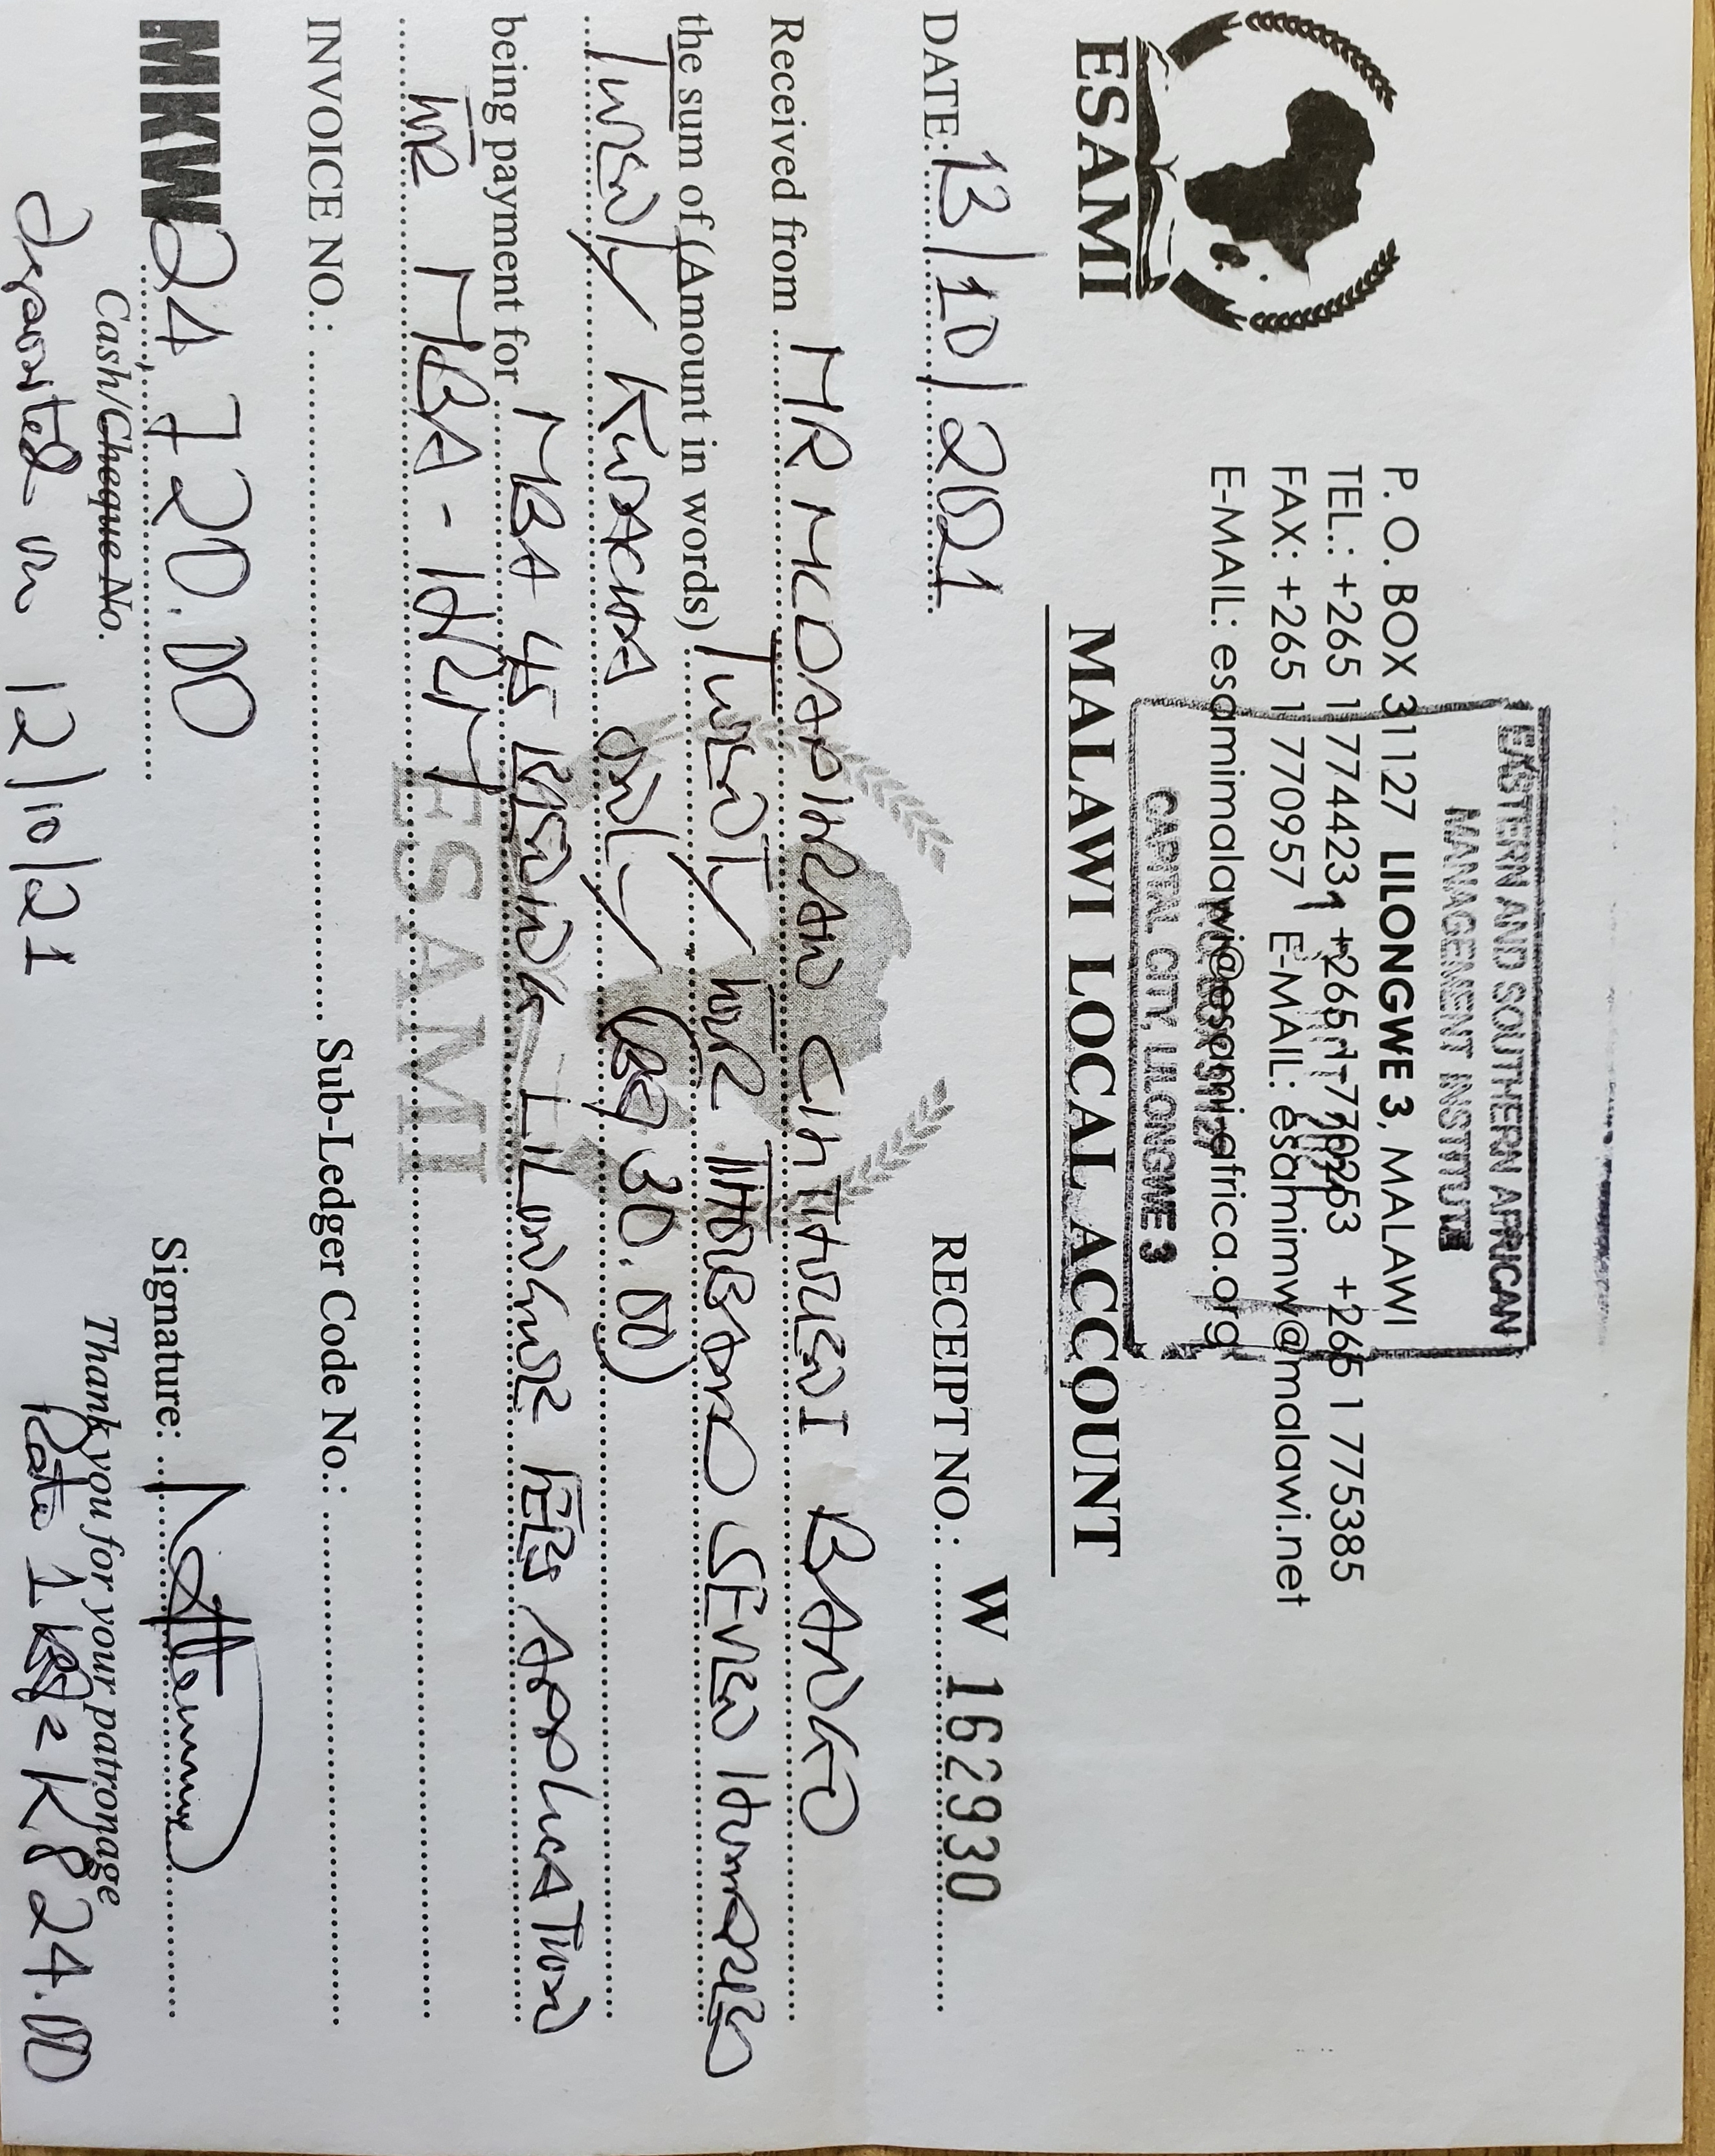 ESAMI
P. O. BOX 31127 LILONGWE 3, MALAWI
TEL.: +265 1 774423 +265 1 770253 +265 1 775385
FAX: +265 1 770957 E-MAIL: esamimw@malawi.net
E-MAIL: esamimalawi@esami-africa.org
EASTERN AND SOUTHERN AFRICAN
MANAGEMENT INSTITUTE
CAPITAL CITY, LILONGWE 3
MALAWI LOCAL ACCOUNT
DATE: 13/10/2021 RECEIPT NO.: W 162930
Received from MR MCDAPHRAIN BANKO
the sum of (Amount in words) TWENTY FOUR THOUSAND SEVEN HUNDRED
TWENTY KWACHA ONLY (USD 30.00)
being payment for MBA 45 LILONGWE FEES APPLICATION
FOR MBA - HRM
ESAMI
INVOICE NO.: Sub-Ledger Code No.:
MKW 24 720.00 Signature:
Cash/Cheque No. Thank you for your patronage
Deposited on 12/10/21 Rate 1 USD = K824.00